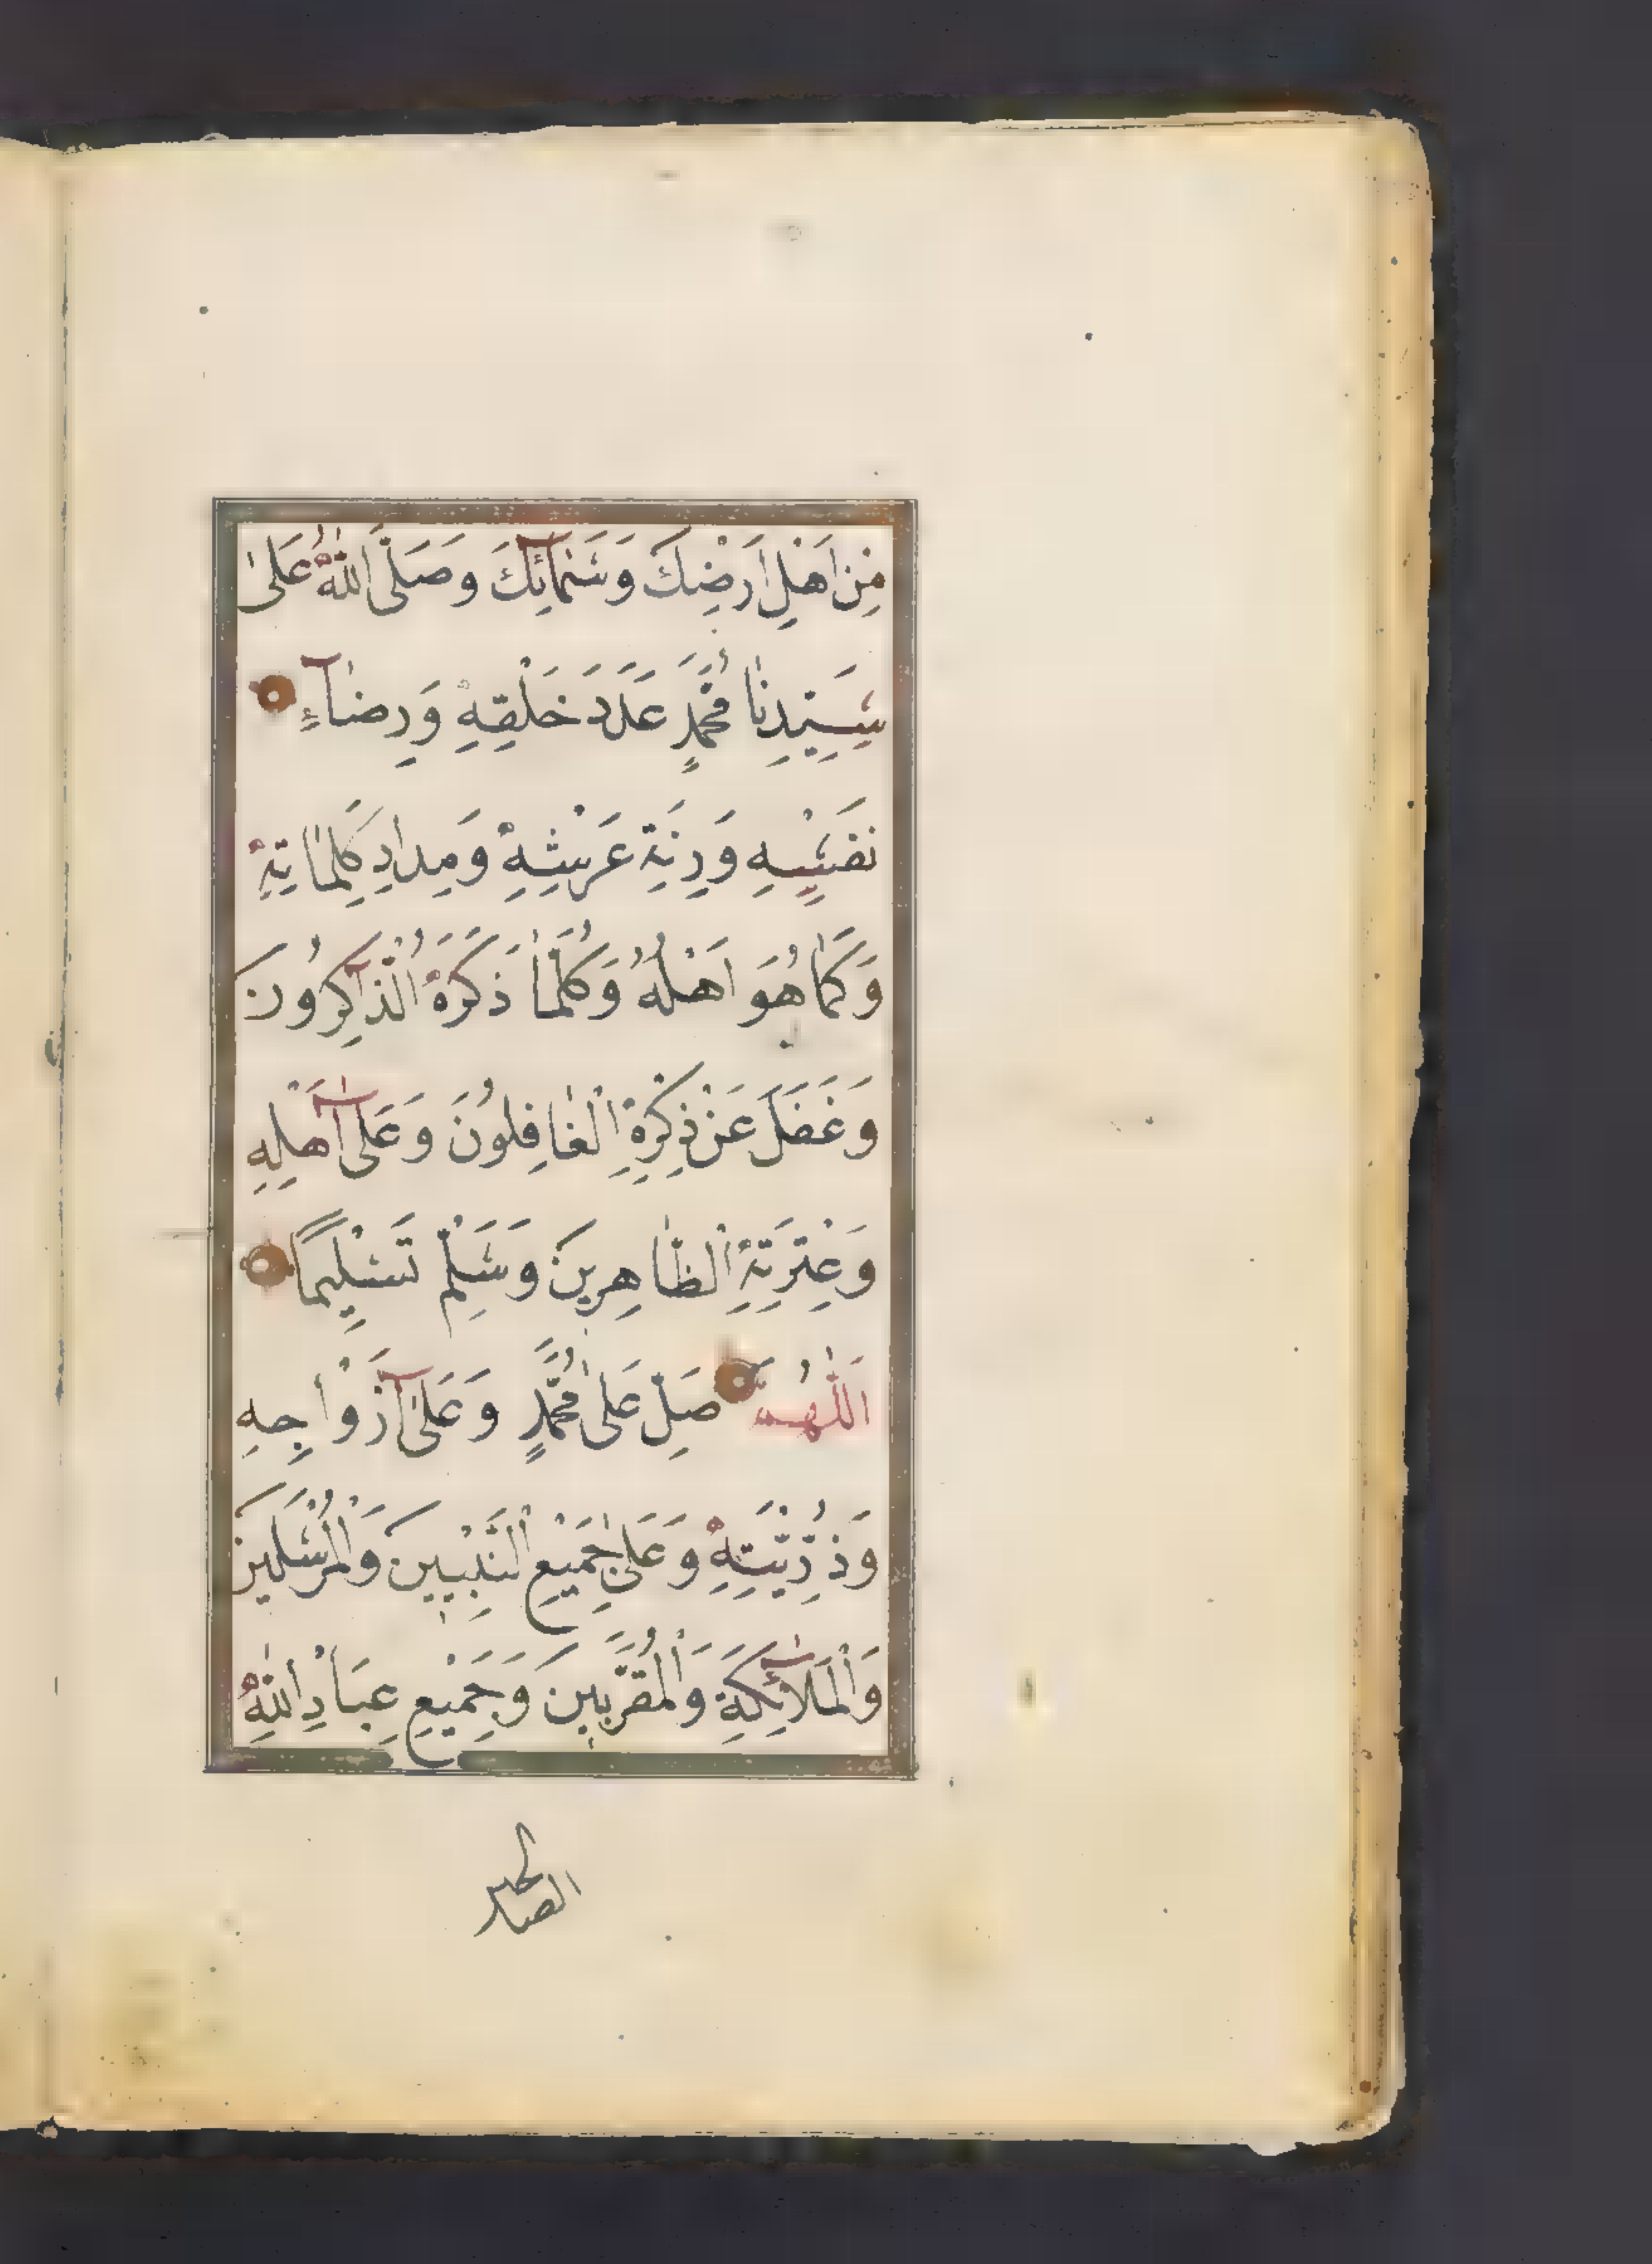 مِنْ اَهْلِ اَرَضِكَ وَسَمٰٓائِكَ وَصَلَّى اللّٰهُ عَلٰى
سَيِّدِنَا مُحَمَّدٍ عَدَدَ خَلْقِهِ وَرِضَآءِ
نَفْسِهِ وَزِنَةِ عَرْشِهِ وَمِدَادِ كَلِمَاتِهِ
وَكَمَا هُوَ اَهْلُهُ وَكُلَّمَا ذَكَرَهُ الذَّاكِرُونَ
وَغَفَلَ عَنْ ذِكْرِهِ الْغَافِلُونَ وَعَلٰٓى اَهْلِهِ
وَعِتْرَتِهِ الطَّاهِرِينَ وَسَلِّمْ تَسْلِيمًا
اَللّٰهُمَّ صَلِّ عَلٰى مُحَمَّدٍ وَعَلٰٓى اَزْوَاجِهِ
وَذُرِّيَّتِهِ وَعَلٰى جَمِيعِ النَّبِيِّينَ وَالْمُرْسَلِينَ
وَالْمَلَآئِكَةِ وَالْمُقَرَّبِينَ وَجَمِيعِ عِبَادِ اللّٰهِ
الصالحين